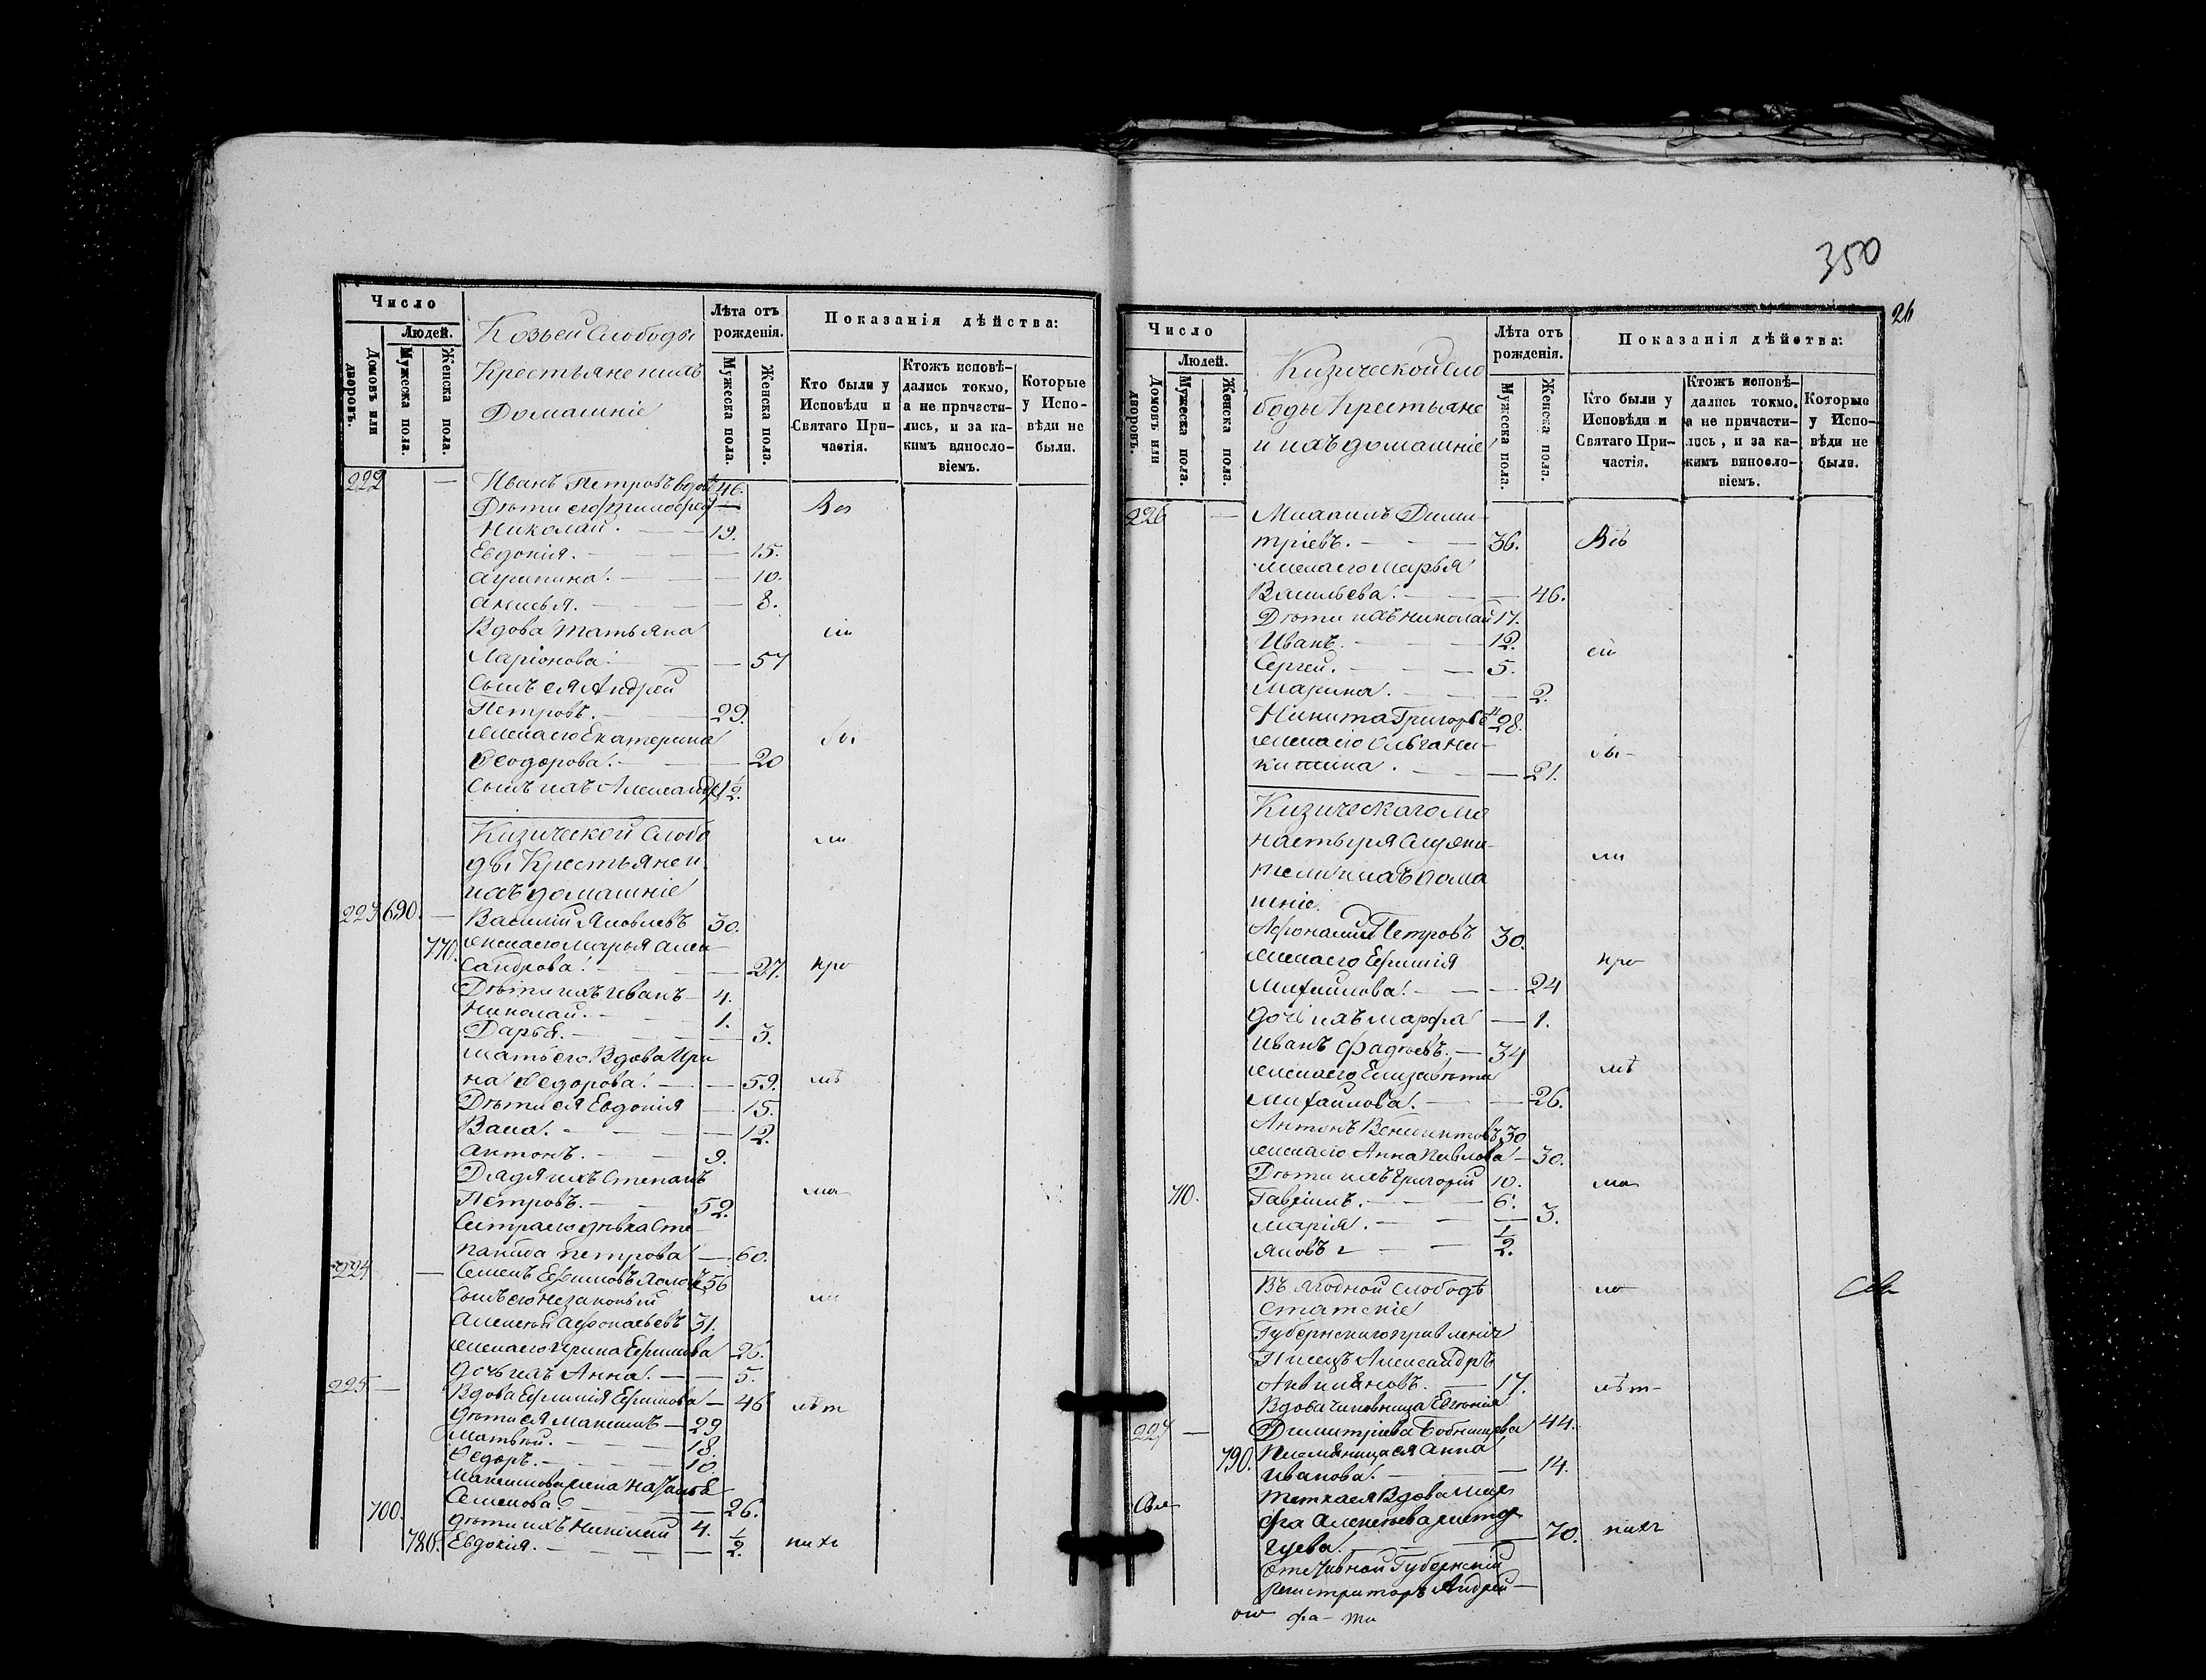 Число
Людей.
Домовъ или дворовъ.
Мужеска пола.
Женска пола.
Козьей Слободы
Крестьяне и ихъ
Домашніе
Лѣта отъ рожденія.
Мужеска пола.
Женска пола.
Показанія дѣйства:
Кто были у Исповѣди и Святаго Причастія.
Ктожъ исповѣдались токмо, а не причастились, и за какимъ винословіемъ.
Которые у Исповѣди не были.
222 — Иванъ Петровъ вдовъ 46.
Дѣти его
Николай. — 19.
Евдокія. — 15.
Агрипина. — 10.
Анисья. — 8.
Вдова Татьяна
Ларіонова. — 57
Сынъ ея Андрей
Петровъ. — 29.
жена его Екатерина
Ѳеодорова. — 20
Сынъ ихъ Александръ 1 1/2.
Кизической Слобо
ды Крестьяне и
ихъ домашніе
223 690. — Василій Яковлевъ 30.
770. жена его Марья Алек
сандрова. — 27.
Дѣти ихъ Иванъ — 4.
Николай. — 1.
Дарья. — 3.
Мать его Вдова Ири
на Ѳедорова. — 59.
Дѣти ея Евдокія — 15.
Васса. — 12.
Антонъ. — 9.
Дядя ихъ Степанъ
Петровъ. — 52.
Сестра его дѣвка Сте
панида Петрова — 60.
224 — Семенъ Ефимовъ 56
Сынъ его незаконный
Алексей Афонасьевъ 31.
жена его Ирина Ефимова 26.
Дочь ихъ Анна. — 5.
225 — Вдова Ефимія Ефимова — 46
дѣти ея Максимъ — 29
Матвѣй. — 18.
Ѳедоръ. — 10.
Максимова жена Наталья
700. Семенова — 26.
дѣти ихъ Николай 4.
780. Евдокія. — 1/2.
350
26
Число
Людей.
Домовъ или дворовъ.
Мужеска пола.
Женска пола.
Кизической сло
боды Крестьяне
и ихъ домашніе
Лѣта отъ рожденія.
Мужеска пола.
Женска пола.
Показанія дѣйства:
Кто были у Исповѣди и Святаго Причастія.
Ктожъ исповѣдались токмо, а не причастились, и за какимъ винословіемъ.
Которые у Исповѣди не были.
226 — Михаилъ Дими
тріевъ. — 36. Всѣ
жена его Марья
Васильева. — 46.
Дѣти ихъ Николай 17.
Иванъ. — 12.
Сергей. — 5.
Марина. — 2.
Никита Григорьевъ 28.
жена его Ольга Ни
китина. — 21.
Кизическаго мо
настыря служи
тели и ихъ дома
шніе.
Афонасій Петровъ 30.
жена его Ефимія
Михайлова. — 24
дочь ихъ Марфа — 1.
Иванъ Фадѣевъ. — 34
жена его Елизавета
Михайлова. — 26.
Антонъ 30
жена его Анна Павлова — 30.
Дѣти ихъ Григорій 10.
710. Гавріилъ. — 6.
Марія. — 3.
Яковъ — 1/2.
Въ Ягодной Слободѣ
Статскіе
Губернскаго правленія
Писецъ Александръ
17.
Вдова чиновница Евгенія
227 — Димитріева 44.
790. Племянница ея Анна
Иванова. — 14.
Тетка ея Вдова
Алексеева
70.
Отставной Губернскій
регистраторъ Андрей —